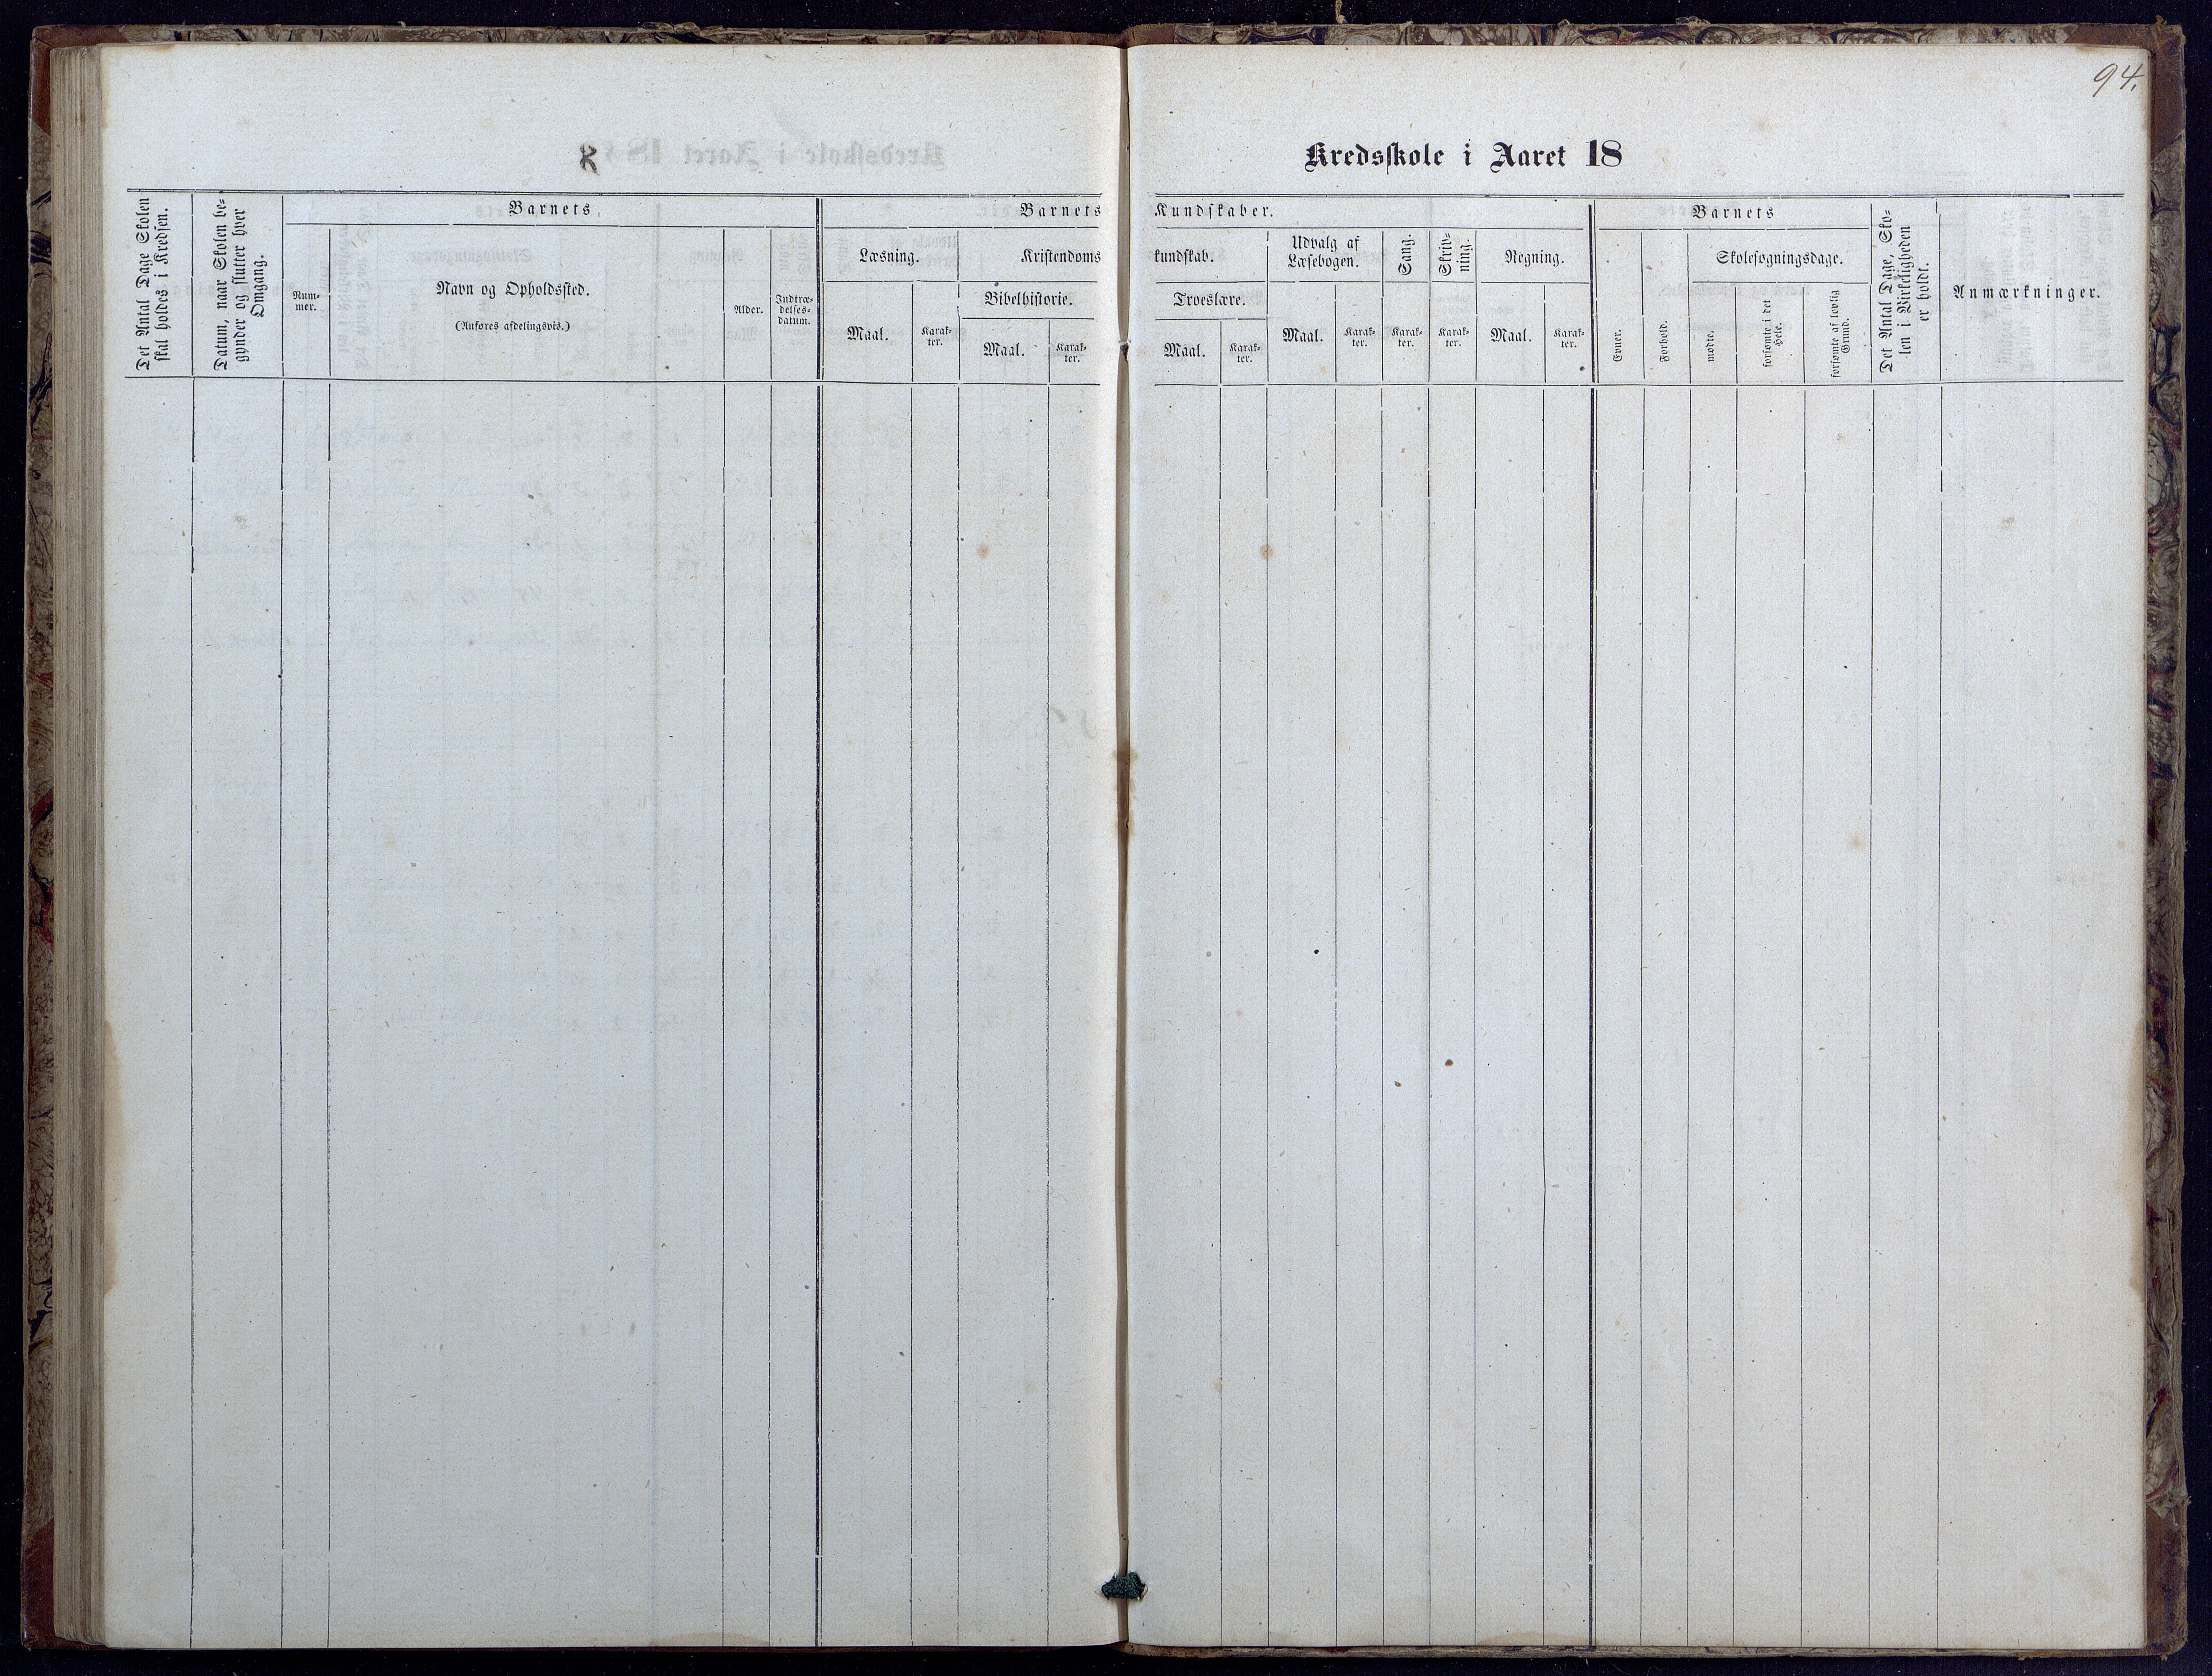 94.
Kredsskole i Aaret 18
Det Antal Dage Skolen
skal holdes i Kredsen.
Datum, naar Skolen be-
gynder og slutter hver
Omgang.
Barnets
Num-
mer.
Navn og Opholdssted.
(Anføres afdelingsvis.)
Alder.
Indtræ-
delses-
datum.
Barnets
Læsning.
Maal.
Karak-
ter.
Kristendoms
Bibelhistorie.
Maal.
Karak-
ter.
Kundskaber.
kundskab.
Troeslære.
Maal.
Karak-
ter.
Udvalg af
Læsebogen.
Maal.
Karak-
ter.
Sang.
Karak-
ter.
Skriv-
ning.
Karak-
ter.
Regning.
Maal.
Karak-
ter.
Barnets
Evner.
Forhold.
Skolesøgningsdage.
mødte.
forsømte i det
Hele.
forsømte af lovlig
Grund.
Det Antal Dage, Sko-
len i Virkeligheden
er holdt.
Anmærkninger.